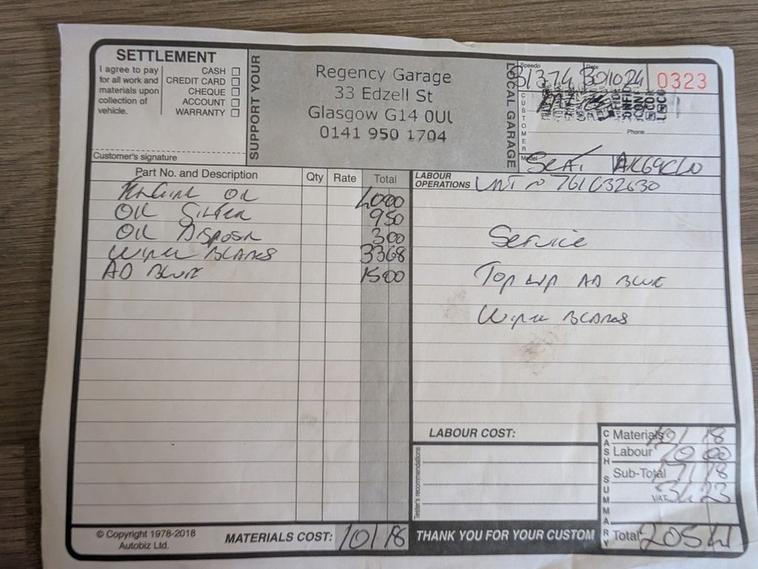 SETTLEMENT
I agree to pay for all work and materials upon collection of vehicle.
CASH
CREDIT CARD
CHEQUE
ACCOUNT
WARRANTY
Customer's signature
SUPPORT YOUR
Regency Garage
33 Edzell St
Glasgow G14 0UL
0141 950 1704
LOCAL GARAGE
Speedo
Date
81374
301024
0323
CUSTOMER
Phone
Model
Seat
Part No. and Description Qty Rate Total
Engine Oil 4000
Oil Filter 950
Oil Disposal 300
Wiper Blades 3368
AD Blue 1500
LABOUR OPERATIONS
VAT No 761032630
Service
Top Up AD Blue
Wiper Blades
LABOUR COST:
Tester's recommendations
CASH SUMMARY
Materials 101 18
Labour
Sub-Total
VAT 34 23
Total 205 41
© Copyright 1978-2018
Autobiz Ltd.
MATERIALS COST: 101 18
THANK YOU FOR YOUR CUSTOM